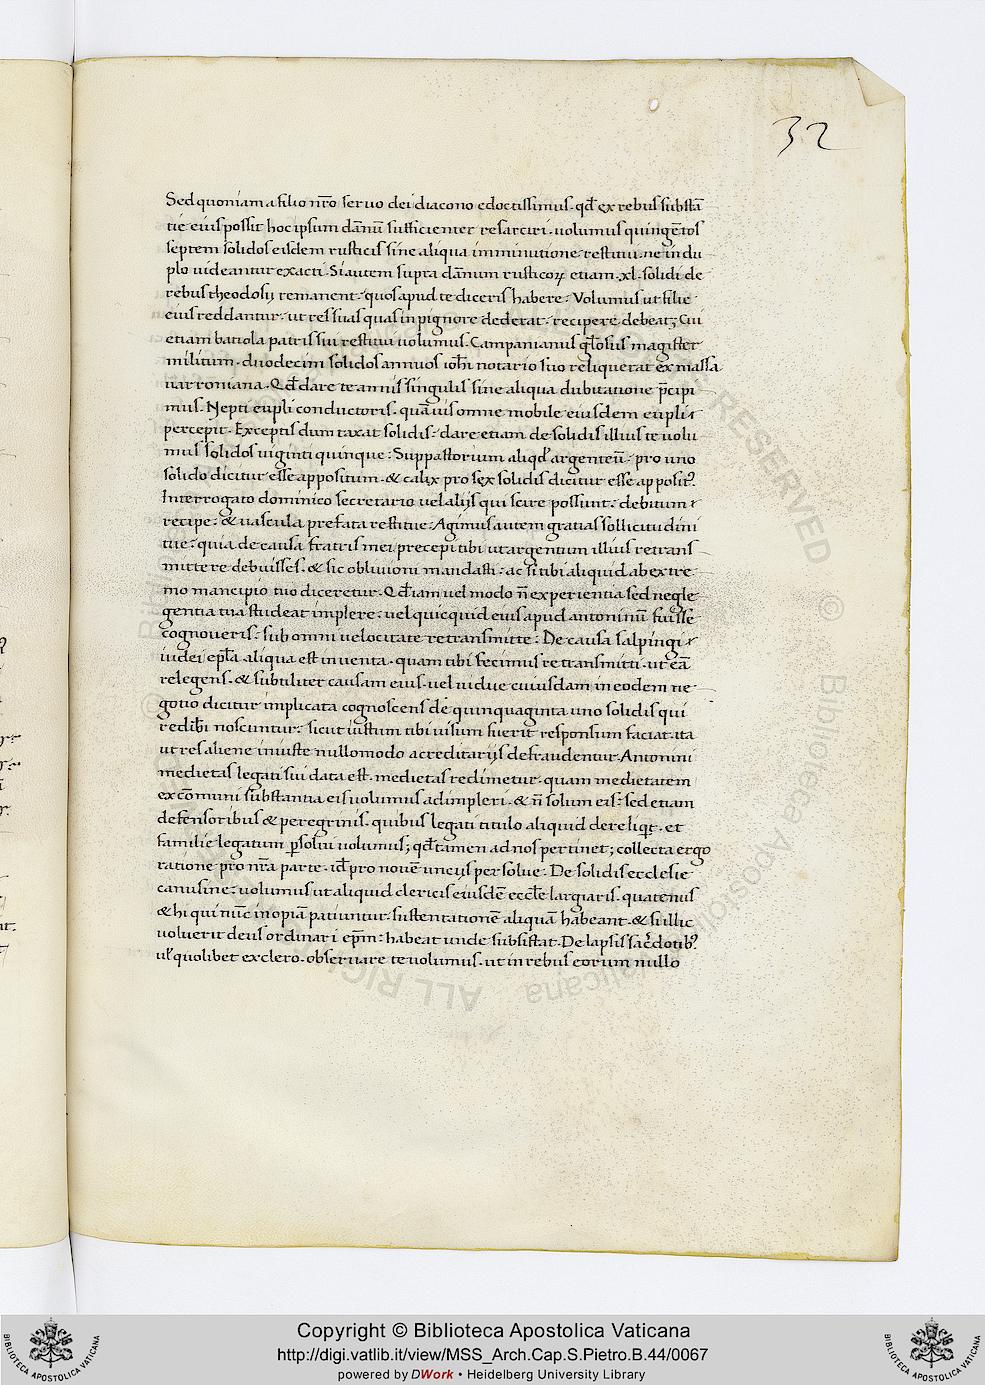 32
Sed quoniam a filio nr̄o seruo dei diacono edoctissimus. qd̄ ex rebus substā
tie eius possit hoc ipsum dānū sufficienter resarciri. uolumus quingētos
septem solidos eisdem rusticis sine aliqua imminutione restitui. ne in du
plo uideantur exacti. Si autem supra dānum rusticoꝝ etiam .xl. solidi de
rebus theodosij remanent. quos apud te diceris habere. Volumus ut filie
eius reddantur. ut res suas quas in pignore dederat. recipere debeat; Cui
etiam batiola patris sui restitui uolumus. Campanianus gl̄osus magister
militum. duodecim solidos annuos ioh̄i notario suo reliquerat ex massa
uarroniana. Qd̄ dare te annis singulis sine aliqua dubitatione p̄cipi
mus. Nepti eupli conductoris. quāuis omne mobile eiusdem eupli
percepit. Exceptis dum taxat solidis. dare etiam de solidis illius te uolu
mus solidos uiginti quinque. Suppastorium aliqd̄ argenteū. pro uno
solido dicitur esse appositum. & calix pro sex solidis dicitur esse apposit᾽.
Interrogato dominico secretario uel alijs qui scire possunt. debitum
recipe. & uascula prefata restitue. Agimus autem gratias sollicitudini
tue. quia de causa fratris mei precepi tibi ut argentum illius retrans
mittere debuisses. & sic obliuioni mandasti. ac si tibi aliquid ab extre
mo mancipio tuo diceretur. Qd̄ iam uel modo n̄ experientia sed negle
gentia tua studeat implere. uel quicquid eius apud antoninū fuisse
cognoueris. sub omni uelocitate retransmitte. De causa salpingi
iudei ep̄la aliqua est inuenta. quam tibi fecimus retransmitti. ut eā
relegens. & subtiliter causam eius. uel uidue cuiusdam in eodem ne
gotio dicitur implicata cognoscens de quinquaginta uno solidis qui
redibi noscuntur. sicut iustum tibi uisum fuerit responsum faciat. ita
ut res aliene iniuste nullomodo a creditarijs defraudentur. Antonini
medietas legati sui data est. medietas redimetur. quam medietatem
ex cōmuni substantia eis uolumus adimpleri. & n̄ solum eis. sed etiam
defensoribus & peregrinis. quibus legati titulo aliquid dereliqt̄. et
familie legatum ꝑsolui uolumus; qd̄ tamen ad nos pertinet; collecta ergo
ratione pro nr̄a parte. id̄ pro nouē uncijs persolue. De solidis ecclesie
canusine. uolumus ut aliquid clericis eiusdē eccl̄e largiaris. quatenus
& hi qui nūc inopiā patiuntur. sustentationē aliquā habeant. & si illic
uoluerit deus ordinari ep̄m. habeat unde subsistat. De lapsis sac̄dotib᾽.
ul̄ quolibet ex clero. obseruare te uolumus. ut in rebus eorum nullo
ALL RIGHTS RESERVED
© Biblioteca Apostolica Vaticana
Copyright © Biblioteca Apostolica Vaticana
http://digi.vatlib.it/view/MSS_Arch.Cap.S.Pietro.B.44/0067
powered by DWork • Heidelberg University Library
BIBLIOTECA APOSTOLICA VATICANA
BIBLIOTECA APOSTOLICA VATICANA